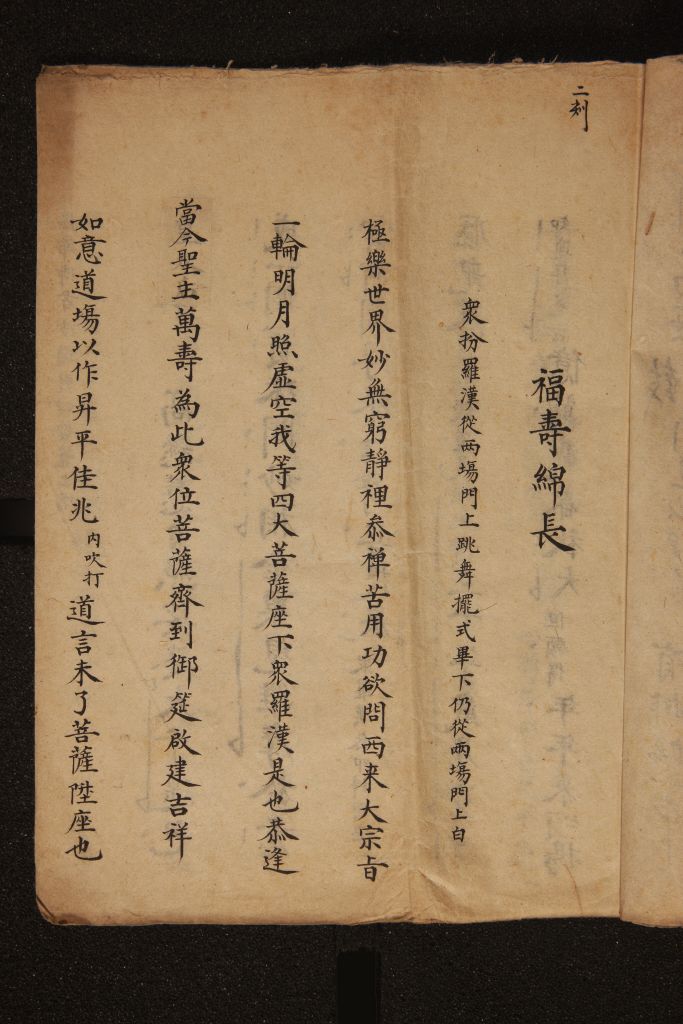 二刻
福壽綿長
衆扮羅漢從兩塲門上跳舞擺式畢下仍從兩塲門上白
極樂世界妙無窮靜裡叅禅苦用功欲問西来大宗旨
一輪明月照虛空我等四大菩薩座下衆羅漢是也恭逢
當今聖主萬壽為此衆位菩薩齊到御筵啟建吉祥
如意道塲以作昇平佳兆內吹打道言未了菩薩陞座也